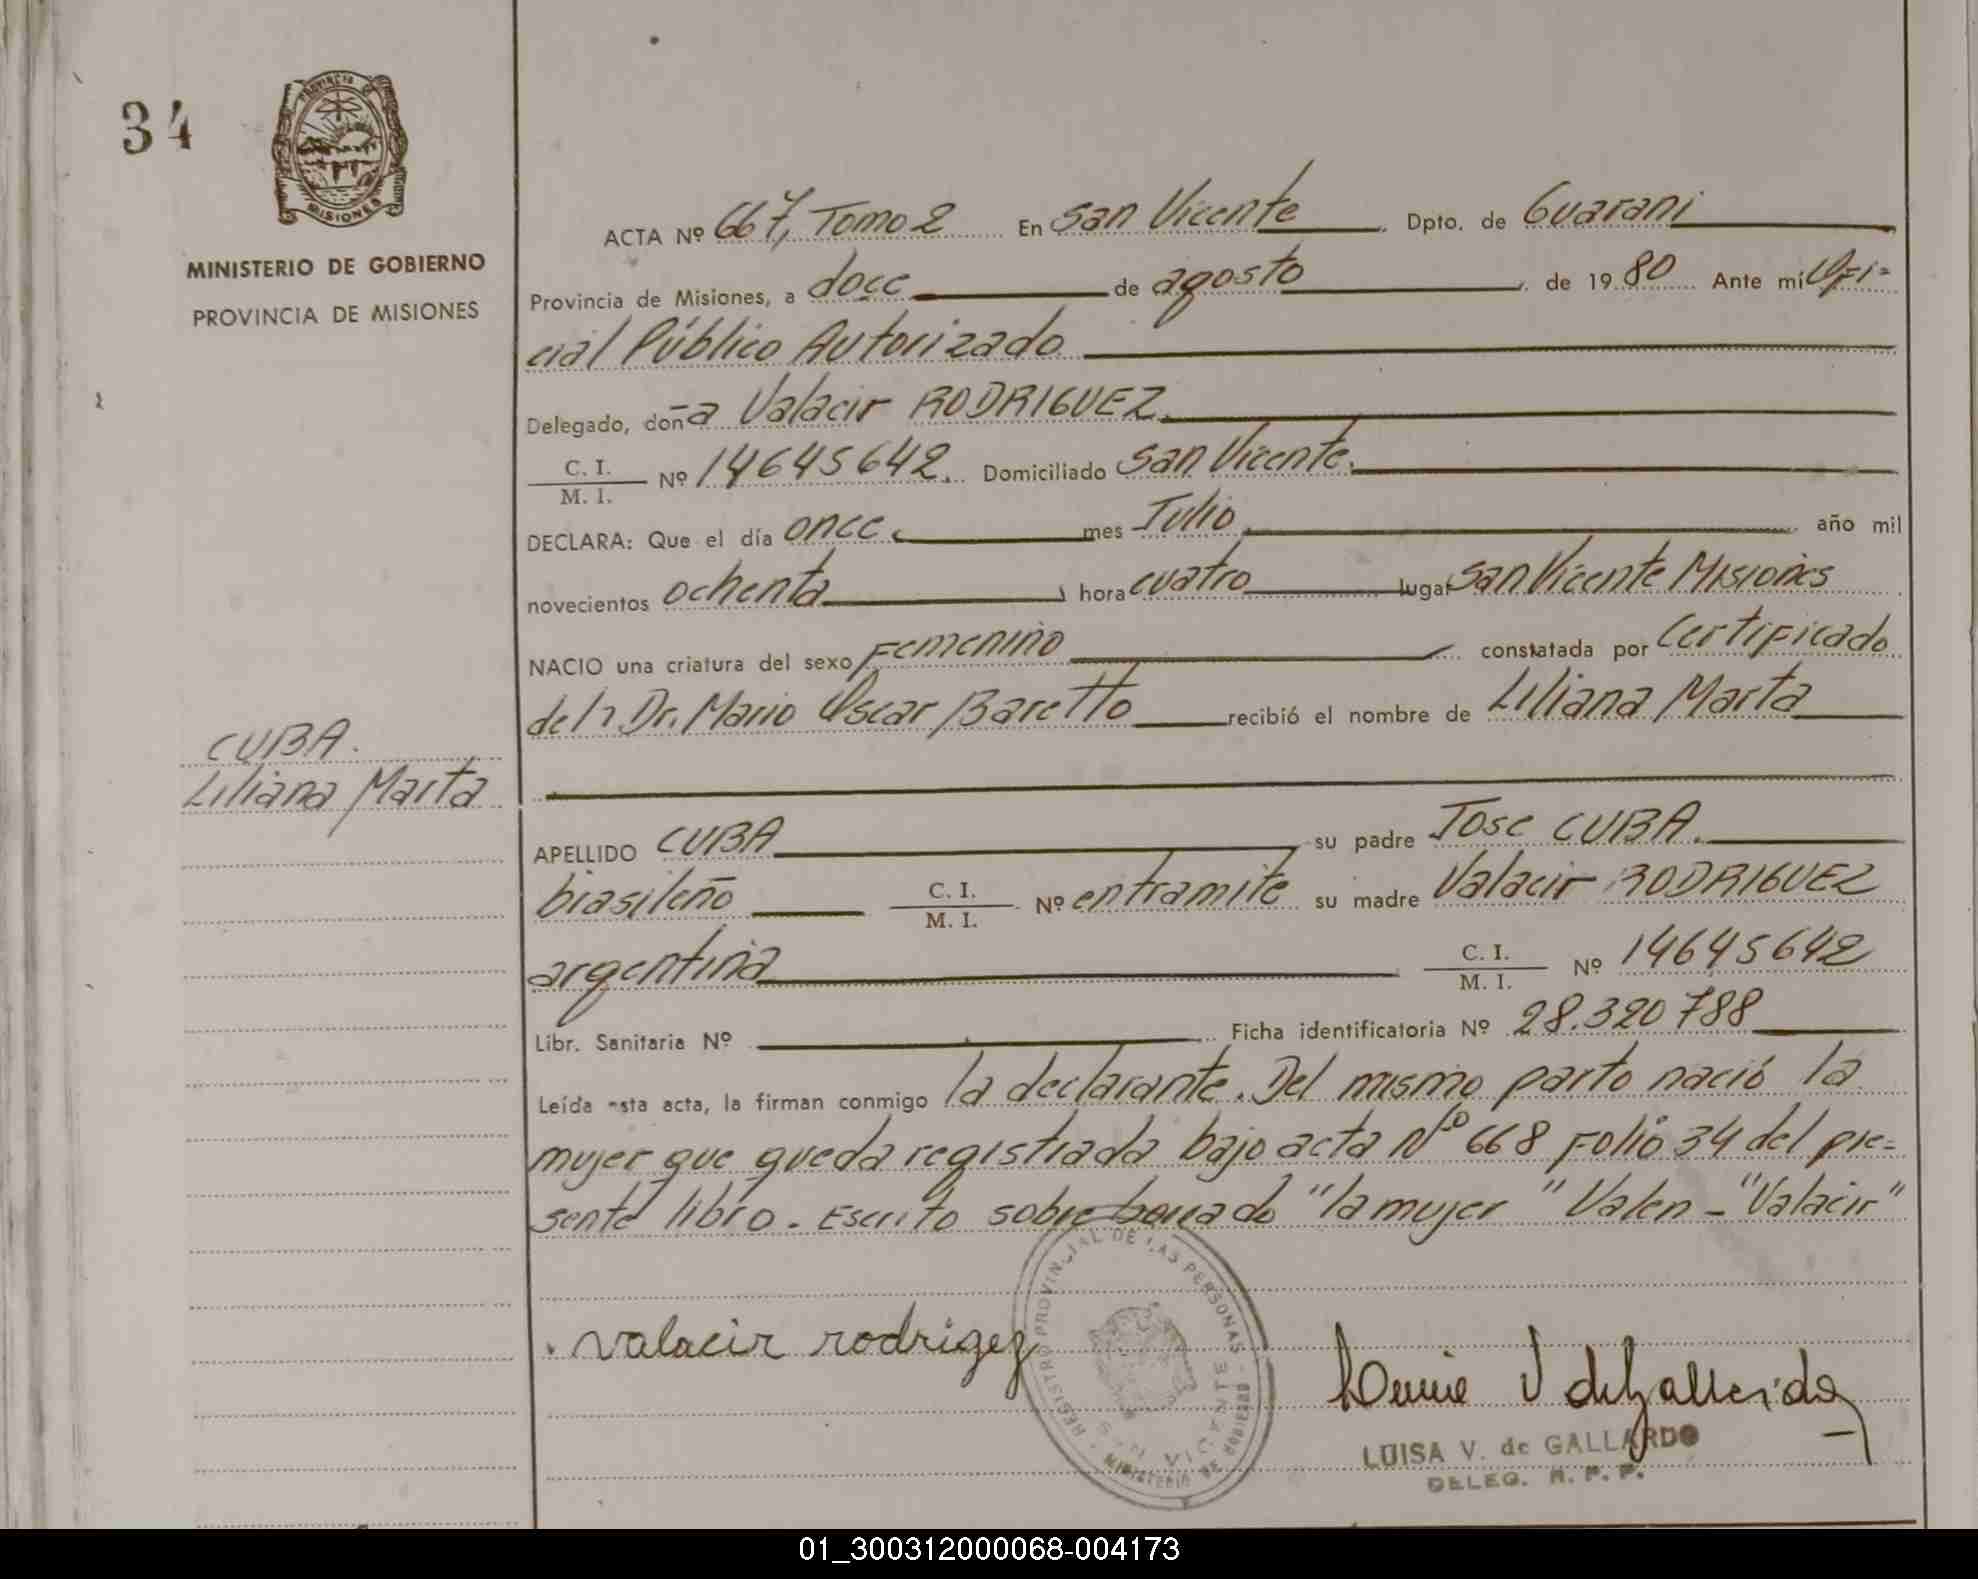 34
PROVINCIA
MISIONES
MINISTERIO DE GOBIERNO
PROVINCIA DE MISIONES
CUBA.
Liliana Marta
ACTA Nº 667, Tomo 2 En San Vicente Dpto. de Guarani
Provincia de Misiones, a doce de agosto de 1980 Ante mí Ofi=
cial Público Autorizado
Delegado, doña Valacir RODRIGUEZ
C. I.
M. I. Nº 14645642. Domiciliado San Vicente.
DECLARA: Que el día once mes Julio año mil
novecientos ochenta hora cuatro lugar San Vicente Misiones
NACIO una criatura del sexo Femenino constatada por Certificado
del Dr. Mario Oscar Baretto recibió el nombre de Liliana Marta
APELLIDO CUBA su padre Jose CUBA.
brasileño C. I.
M. I. Nº en tramite su madre Valacir RODRIGUEZ
argentina C. I.
M. I. Nº 14645642
Libr. Sanitaria Nº Ficha identificatoria Nº 28.320 788
Leída esta acta, la firman conmigo la declarante. Del mismo parto nació la
mujer que queda registrada bajo acta Nº 668 Folio 34 del pre=
sente libro. Escrito sobre borrado "la mujer" Valen - "Valacir"
valacir rodrigez
REGISTRO PROVINCIAL DE LAS PERSONAS - SAN VICENTE
MINISTERIO DE GOBIERNO
LUISA V. de GALLARDO
DELEG. R. P. P.
01_300312000068-004173